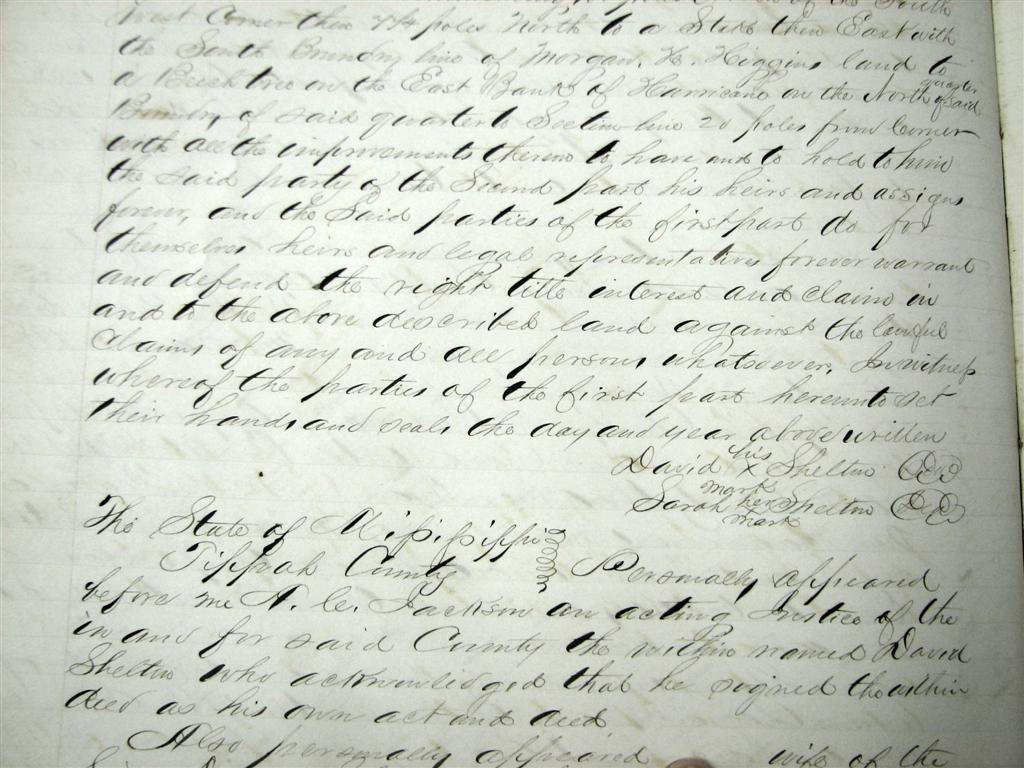 of the South
West Corner then 74 poles North to a Stake then East with
the South Boundry line of Morgan. H. Higgins land to
a Beech tree on the East Bank of Hurricane on the North quarter of said
Boundry of said quarter to Section line 20 poles from Corner
with all the improvements thereno to have and to hold to him
the said party of the Second part his heirs and assigns
forever, and the Said parties of the first part do for
themselves heirs and legal representatives forever warrant
and defend the right title interest and claim in
and to the above described land against the lawful
Claims of any and all persons whatsoever, In witness
whereof the parties of the first part hereunto set
their hands and seals the day and year above written
David his X mark Shelton
Sarah her mark Shelton
The State of Mississippi
Tippah County Personally appeared
before me A. C. Jackson an acting Justice of the
in and for said County the within named David
Shelton who acknowledged that he signed the within
deed as his own act and deed
Also personally appeared wife of the